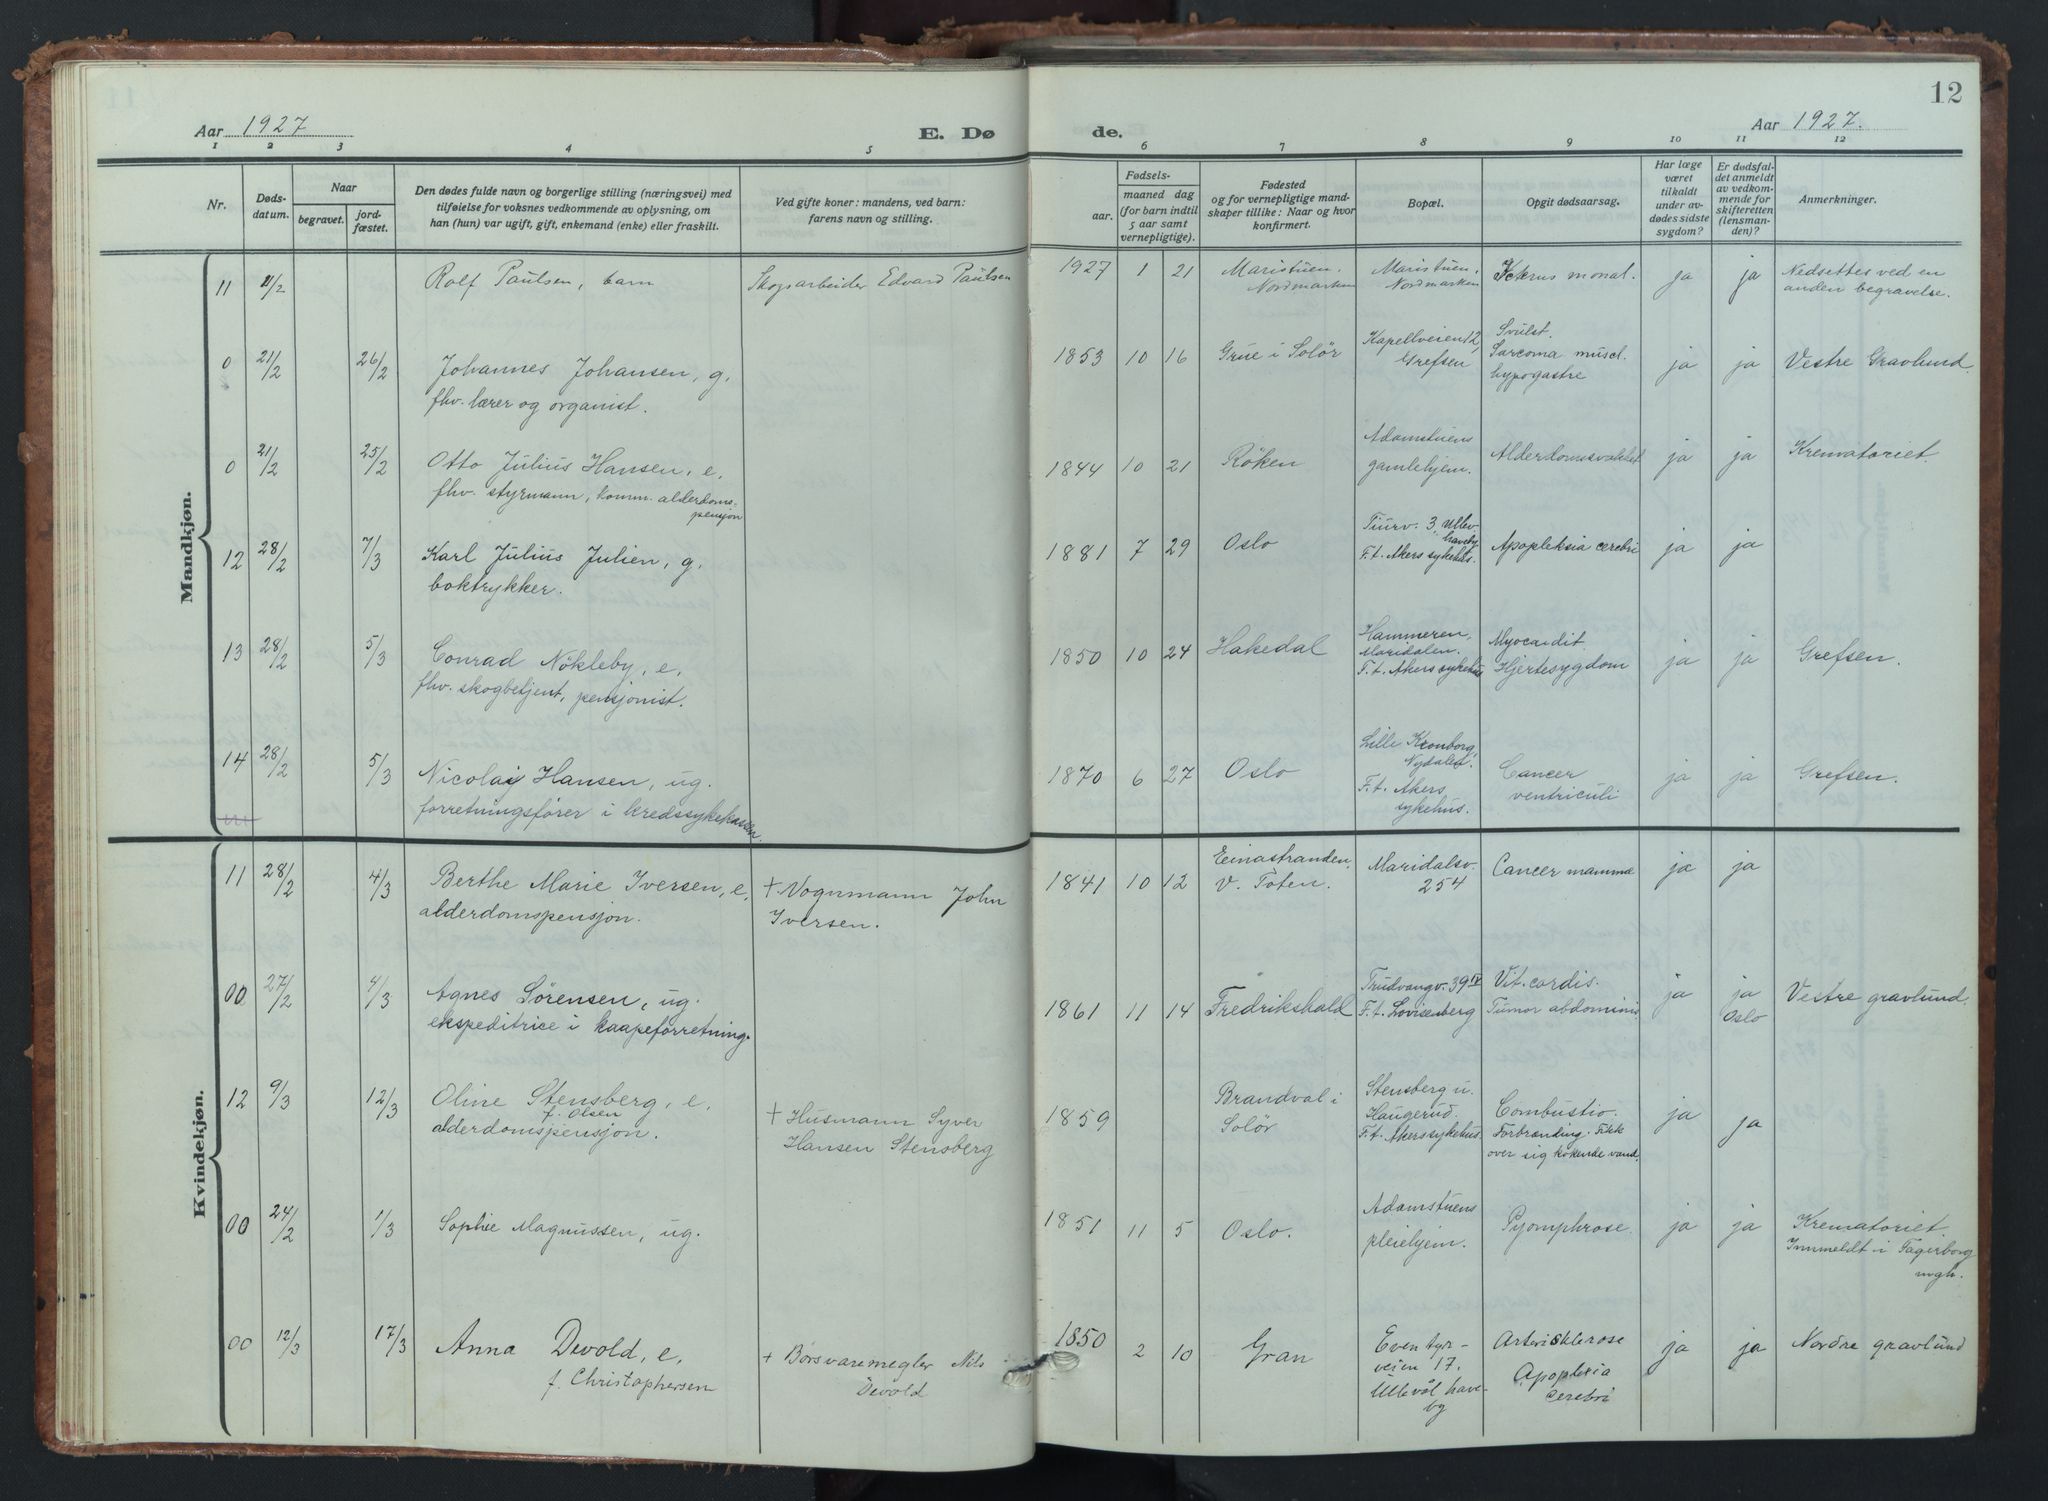 12
Aar 1927
E. Dø
de.
Aar 1927.
1 2 3 4 5
6 7 8 9 10 11 12
Nr.
Døds-
datum.
Naar
begravet.
jord-
fæstet.
Den dødes fulde navn og borgerlige stilling (næringsvei) med
tilføielse for voksnes vedkommende av oplysning, om
han (hun) var ugift, gift, enkemand (enke) eller fraskilt.
Ved gifte koner: mandens, ved barn:
farens navn og stilling.
Fødsels-
aar.
maaned dag
(for barn indtil
5 aar samt
vernepligtige).
Fødested
og for vernepligtige mand-
skaper tillike: Naar og hvor
konfirmert.
Bopæl.
Opgit dødsaarsag.
Har læge
været
tilkaldt
under av-
dødes sidste
sygdom?
Er dødsfal-
det anmeldt
av vedkom-
mende for
skifteretten
(lensman-
den)?
Anmerkninger.
Mandkjøn.
11 2/2 Rolf Paulsen, barn Skogsarbeider Edvard Paulsen
1927 1 21 Maristuen.
Nordmarken
Maristuen.
Nordmarken
Icterus monal. ja ja Nedsettes ved en
anden begravelse.
0 21/2 26/2 Johannes Johansen, g.
fhv. lærer og organist.
1853 10 16 Grue i Solör
Kapellveien 12,
Grefsen
Svulst.
Sarcoma muscl.
hypogastre
ja ja Vestre Gravlund.
0 21/2 25/2 Otto Julius Hansen, e.
fhv. styrmann, komm. alderdoms-
pensjon
1844 10 21 Röken
Adamstuens
gamlehjem.
Alderdomssvakhet ja ja Krematoriet.
12 28/2 7/3 Karl Julius Julien, g.
boktrykker.
1881 7 29 Oslo
Tiurv. 3, Ullev.
haveby
F.t. Akers sykehus.
Apopleksia cerebri ja ja
13 28/2 5/3 Conrad Nökleby, e.
fhv. skogbetjent, pensjonist.
1850 10 24 Hakedal
Hammeren,
Maridalen.
F.t. Akers sykehus
Myocardit.
Hjertesygdom
ja ja Grefsen.
14 28/2 5/3 Nicolai Hansen, ug.
forretningsfører i kredssykekassen.
1870 6 27 Oslo
Lille Kronborg,
Nydalen.
F.t. Akers
sykehus.
Cancer
ventriculi
ja ja Grefsen.
Kvindekjøn.
11 28/2 4/3 Berthe Marie Iversen, e,
alderdomspensjon.
+ Vognmann John
Iversen.
1841 10 12 Einastranden.
V. Toten.
Maridalsv.
254
Cancer mammæ ja ja
00 27/2 4/3 Agnes Sørensen, ug.
ekspeditrice i kaapeforretning.
1861 11 14 Fredrikshald
Trudvangv. 39 IV
F.t. Lovisenberg
Vit. cordis.
Tumor abdominis
ja ja
Oslo
Vestre gravlund.
12 9/3 12/3 Oline Stensberg, e.
f. Olsen
alderdomspensjon.
+ Husmann Syver
Hansen Stensberg
1859 Brandval i
Solör
Stensberg u.
Haugerud.
F.t. Akers sykehus.
Combustio.
Forbrænding. Fikk
over sig kokende vand.
ja ja
00 24/2 1/3 Sophie Magnussen, ug.
1851 11 5 Oslo.
Adamstuens
pleiehjem.
Pyomphrose. ja ja Krematoriet.
Innmeldt i Fagerborg
mgh.
00 12/3 17/3 Anna Devold, e.
f. Christophersen
+ Börsvaremegler Nils
Devold
1850 2 10 Gran
Eventyr-
veien 17.
Ullevål have-
by
Arterisklerose
Apoplexia
cerebri
ja ja Nordre gravlund